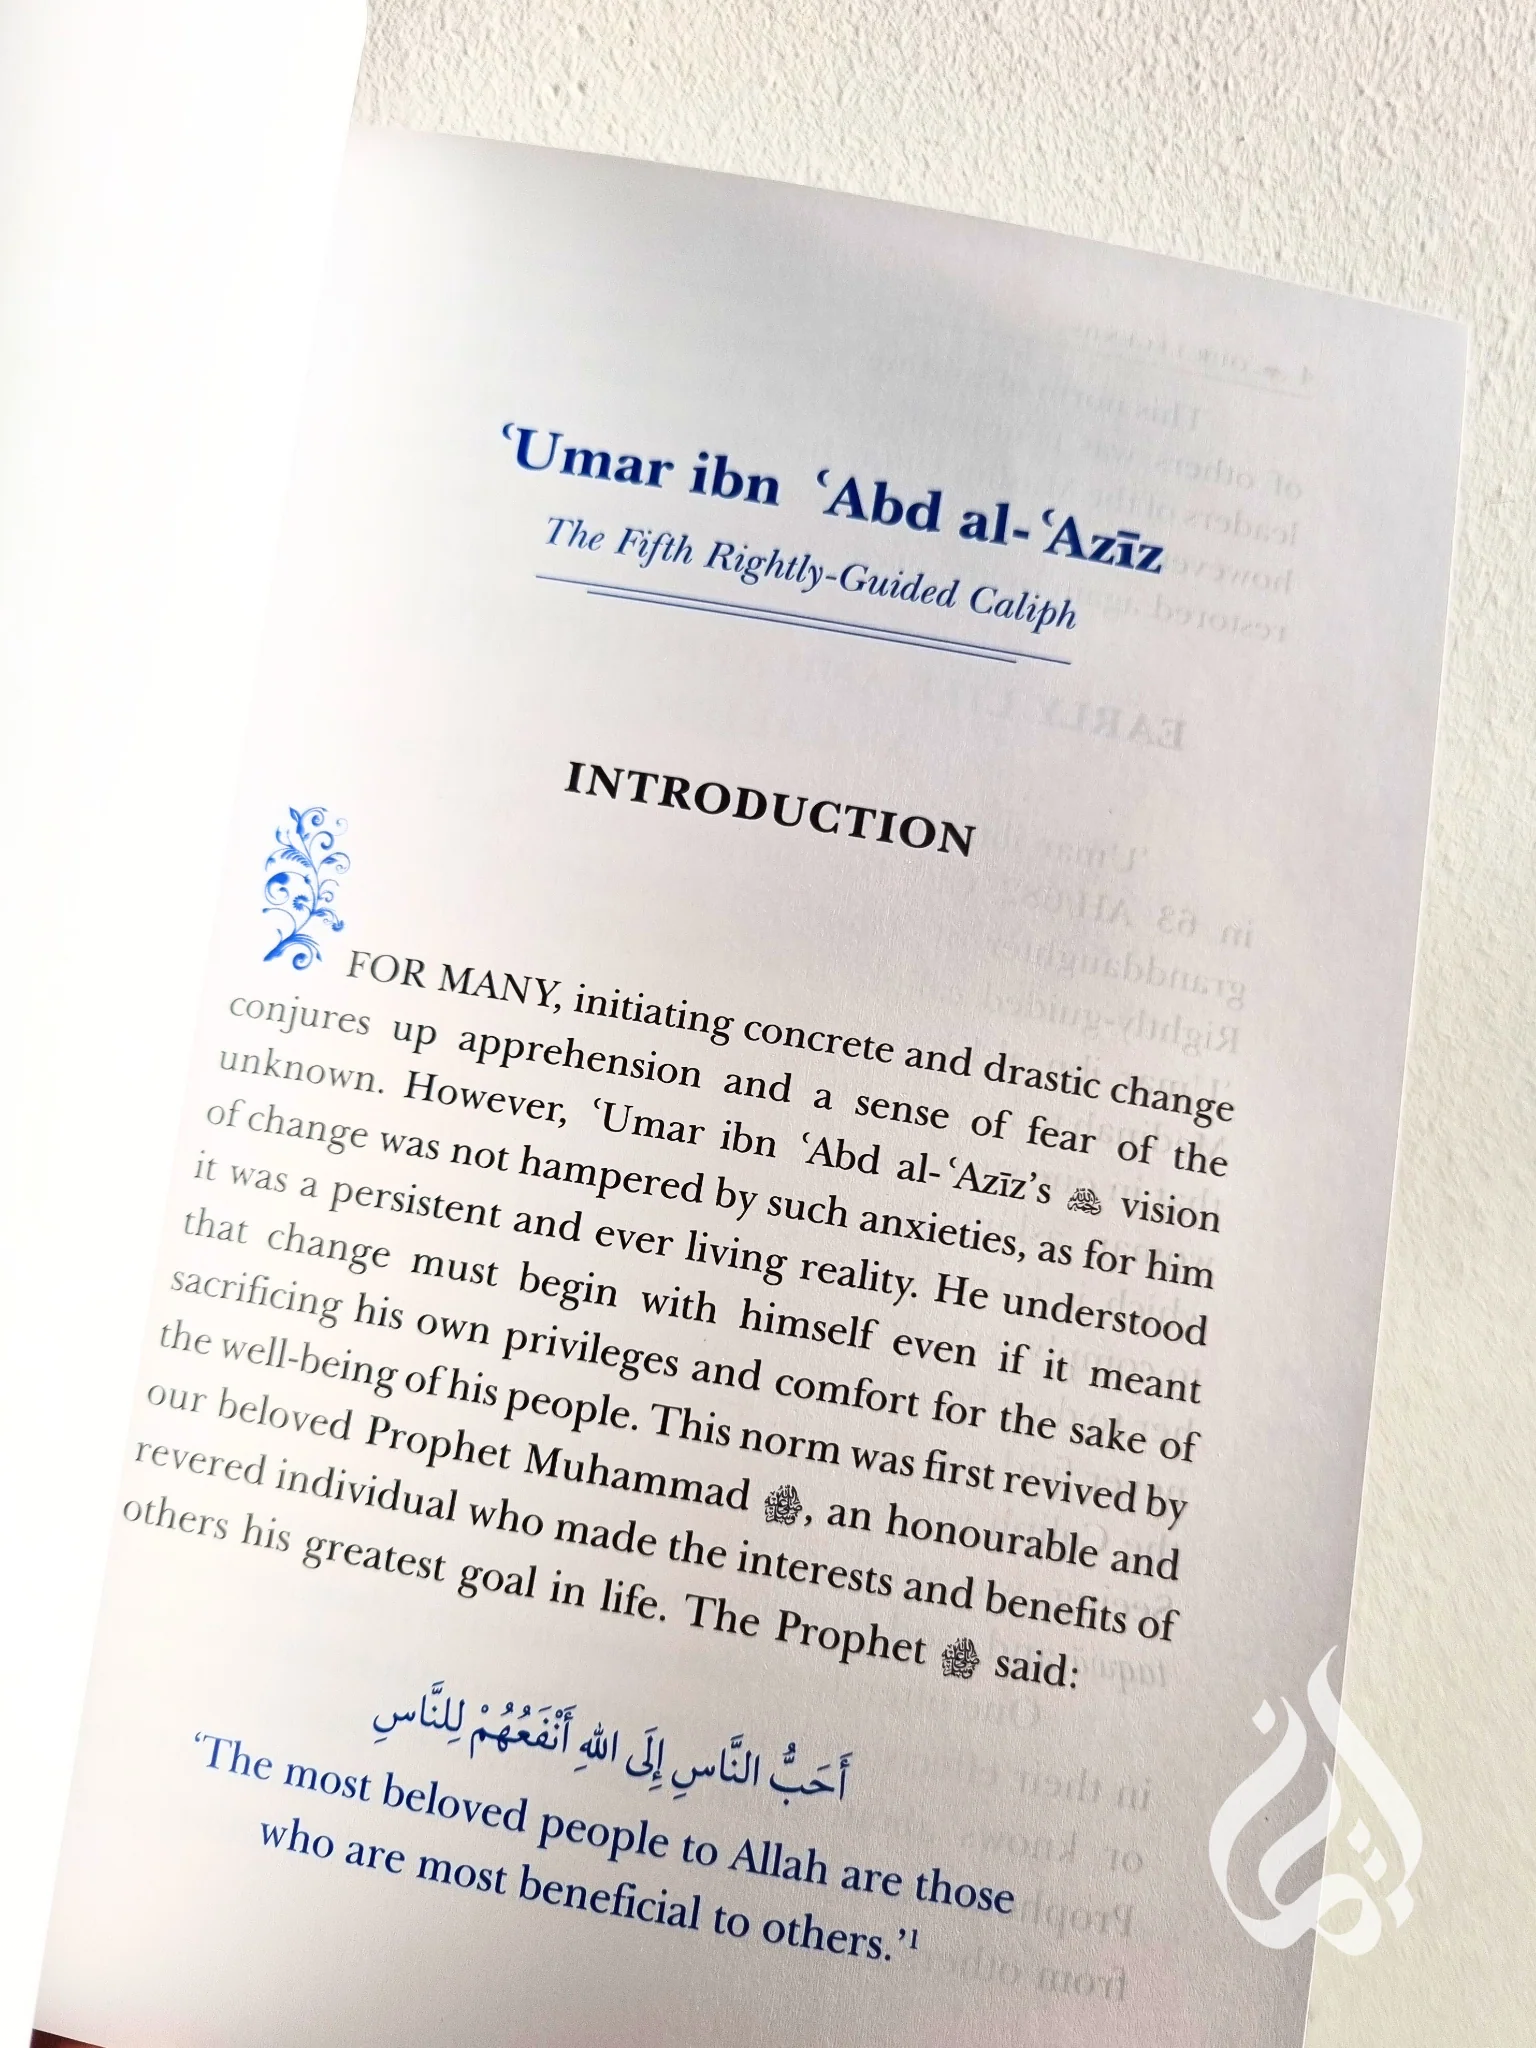 ʿUmar ibn ʿAbd al-ʿAzīz
The Fifth Rightly-Guided Caliph
INTRODUCTION
FOR MANY, initiating concrete and drastic change
conjures up apprehension and a sense of fear of the
unknown. However, ʿUmar ibn ʿAbd al-ʿAzīz’s رحمه الله vision
of change was not hampered by such anxieties, as for him
it was a persistent and ever living reality. He understood
that change must begin with himself even if it meant
sacrificing his own privileges and comfort for the sake of
the well-being of his people. This norm was first revived by
our beloved Prophet Muhammad ﷺ, an honourable and
revered individual who made the interests and benefits of
others his greatest goal in life. The Prophet ﷺ said:
أَحَبُّ النَّاسِ إِلَى اللهِ أَنْفَعُهُمْ لِلنَّاسِ
‘The most beloved people to Allah are those
who are most beneficial to others.’1